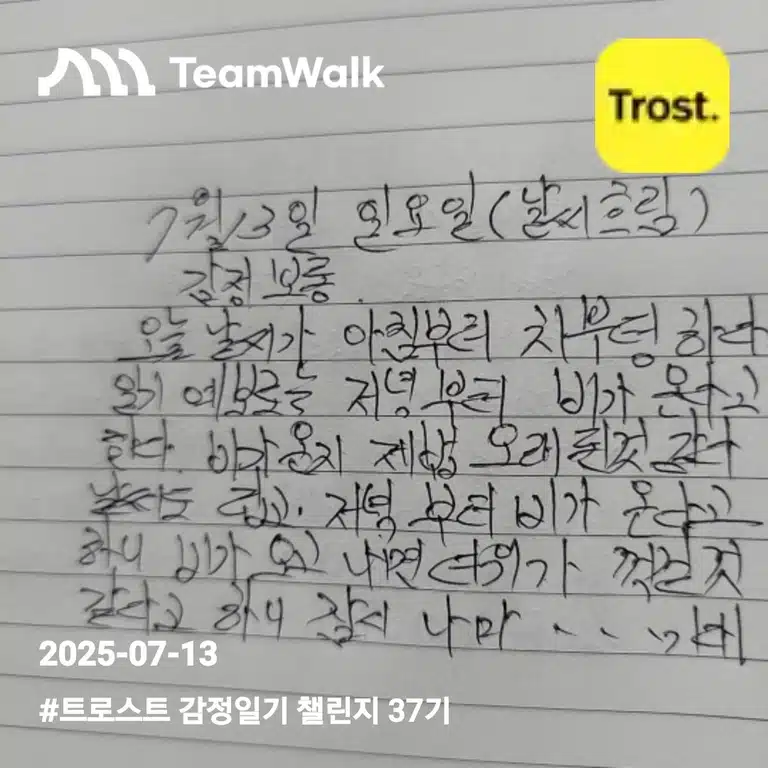 TeamWalk
Trost.
7월13일 일요일(날씨흐림)
감정 보통.
오늘 날씨가 아침부터 치부덩 하다
일기 예보로는 저녁부터 비가 온다고
한다. 비가온지 제법 오래된것 같다
날씨도 덥고. 저녁 부터 비가 온다고
하니 비가 오고 나면 더위가 꺽일 것
같다고 하니 잠시 나마
2025-07-13
#트로스트 감정일기 챌린지 37기